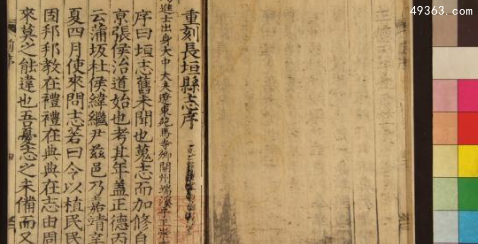 重刻長垣縣志序
進士出身大中大夫
序曰垣志舊未聞也蒐志而加修自
京張侯治道始也考其年蓋正德丙
云蒲坂杜侯緯繼尹茲邑乃嘉靖辛
夏四月使來問志若曰今以植民民
因邦邦教在禮禮在典典在志由周
來莫之能違也吾邑志之未備而又
49363.com